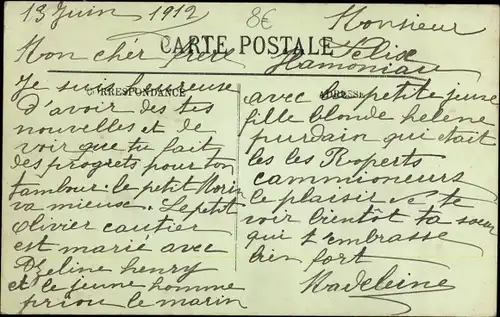 13 Juin 1912
8€
Monsieur
Mon chér frére
CARTE POSTALE
Félix
Hamoniau
CORRESPONDANCE
ADRESSE
Je suis hereuse
d'avoir des tes
nouvelles et de
voir que tu fait
des progrets pour ton
tambour. le petit Morin
va mieuse. Le petit
Olivier cautier
est marié avec
Azeline henry
et le jeune homme
priou le marin
avec la petite jeune
fille blonde helene
purdain qui était
les les Roperts
cammioneurs
le plaisir de te
voir bientot ta sœur
qui t'embrasse
bien fort
Madeleine